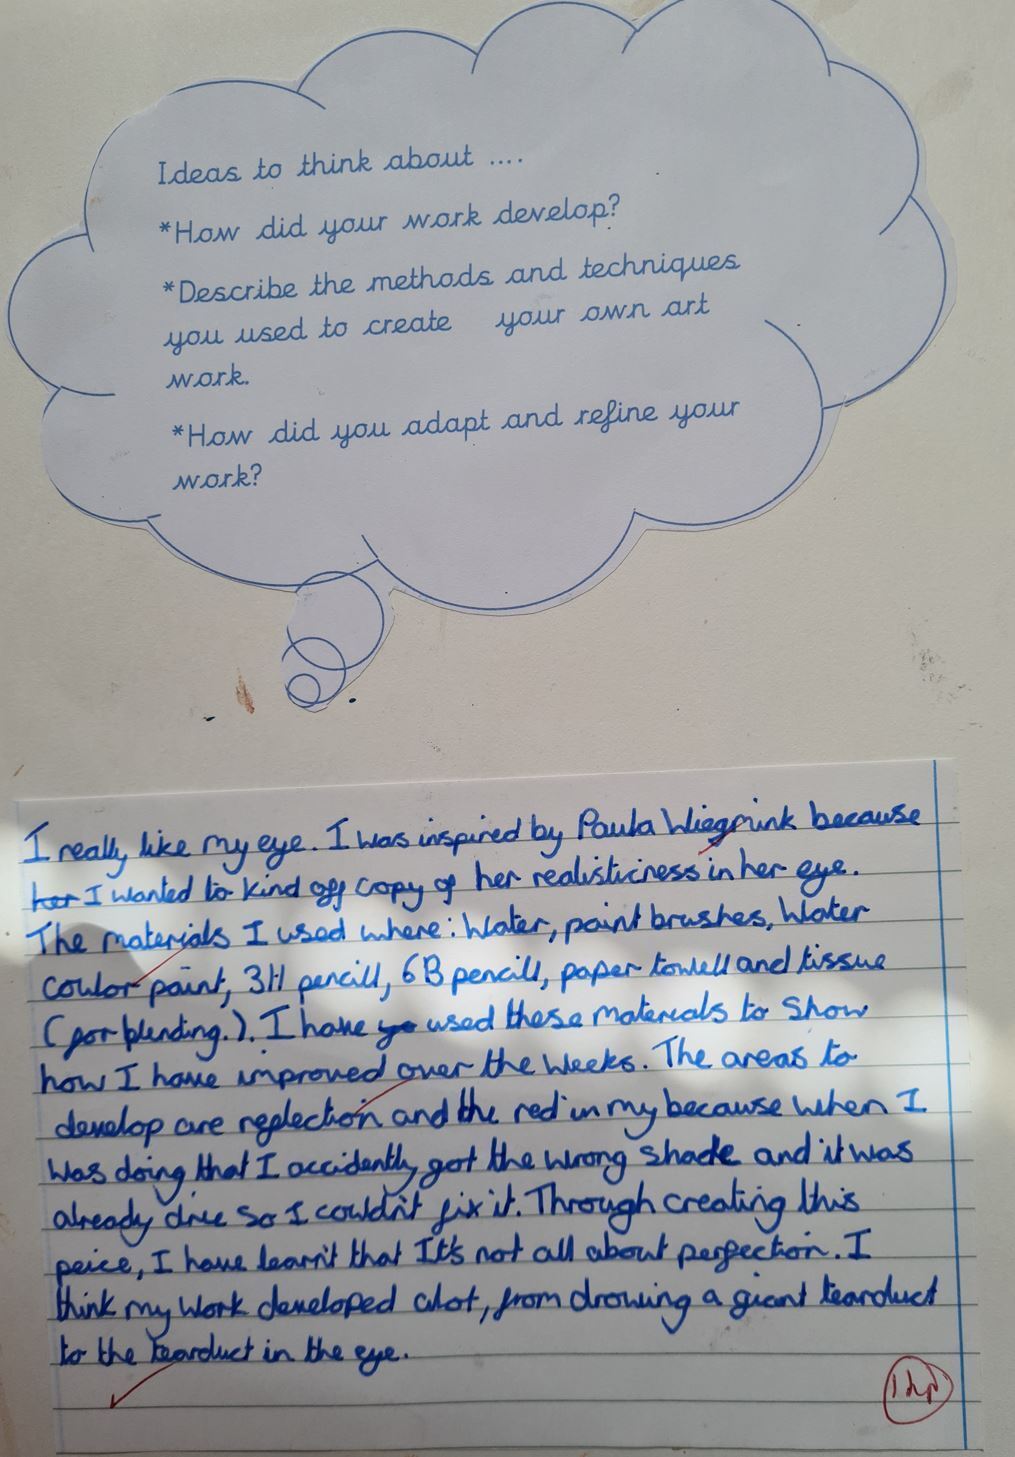 Ideas to think about ....
*How did your work develop?
*Describe the methods and techniques
you used to create your own art
work.
*How did you adapt and refine your
work?
I really like my eye. I was inspired by Paula Wiegmink because
her I wanted to kind off copy of her realisticness in her eye.
The materials I used where: Water, paint brushes, Water
coulor paint, 3H pencill, 6B pencill, paper towell and tissue
(for blending.). I have yo used these materials to show
how I have improved over the weeks. The areas to
develop are reflection and the red in my because when I
was doing that I accidently got the wrong shade and it was
already drie so I couldn't fix it. Through creating this
peice, I have learn't that It's not all about perfection. I
think my work developed alot, from drowing a giant tearduct
to the tearduct in the eye.